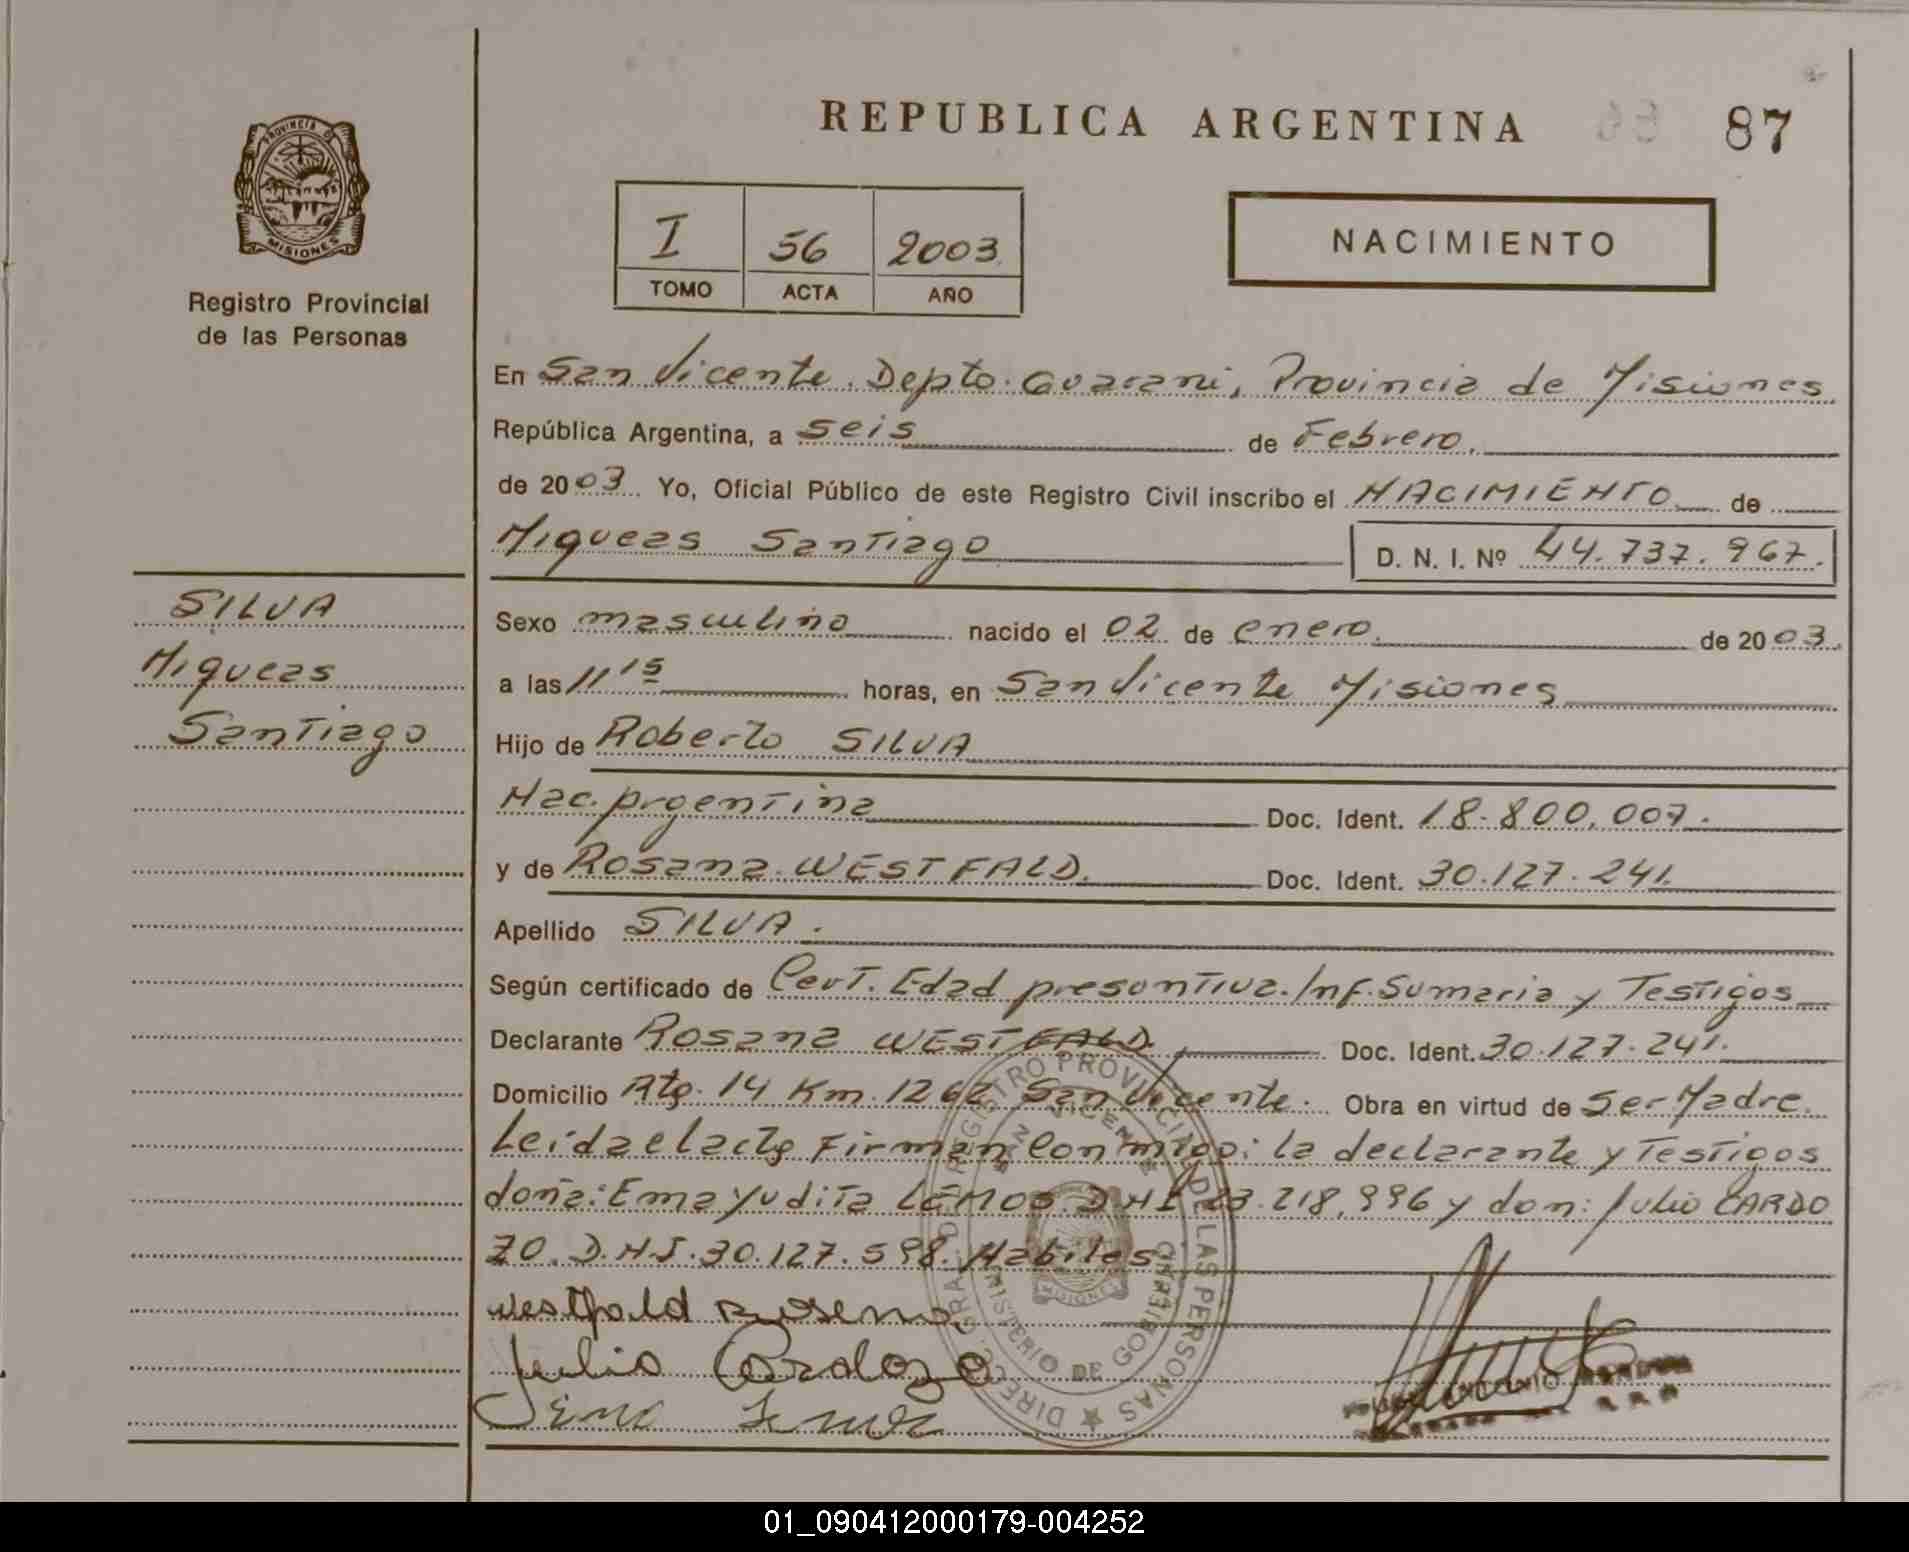 REPUBLICA ARGENTINA
87
PROVINCIA D
MISIONES
Registro Provincial
de las Personas
I 56 2003
TOMO ACTA AÑO
NACIMIENTO
En San Vicente. Depto. Guarani, Provincia de Misiones
República Argentina, a seis de Febrero.
de 2003. Yo, Oficial Público de este Registro Civil inscribo el NACIMIENTO de
Miqueas Santiago D. N. I. Nº 44.737.967.
SILVA
Miqueas
Santiago
Sexo masculino nacido el 02 de enero. de 2003.
a las 11 15 horas, en San Vicente Misiones
Hijo de Roberto SILVA
Nac. Argentina Doc. Ident. 18.800.007.
y de Rosana WESTFALD. Doc. Ident. 30.127.241.
Apellido SILVA.
Según certificado de Cert. Edad presuntiva. Inf. Sumaria y Testigos
Declarante Rosana WESTFALD. Doc. Ident. 30.127.241.
Domicilio Rta. 14 Km. 1262 San Vicente. Obra en virtud de Ser Madre.
Leída el acta Firman conmigo: la declarante y Testigos
doña: Ema Yudita LEMOS. D.N.I. 23.218.996 y don: Julio CARDO
ZO. D.N.I. 30.127.598. Habiles
Westfald Rosana
Julio Cardozo
Ema Lemos
REGISTRO PROVINCIAL DE LAS PERSONAS
SAN VICENTE
MINISTERIO DE GOBIERNO
MISIONES
ANTONIO
01_090412000179-004252